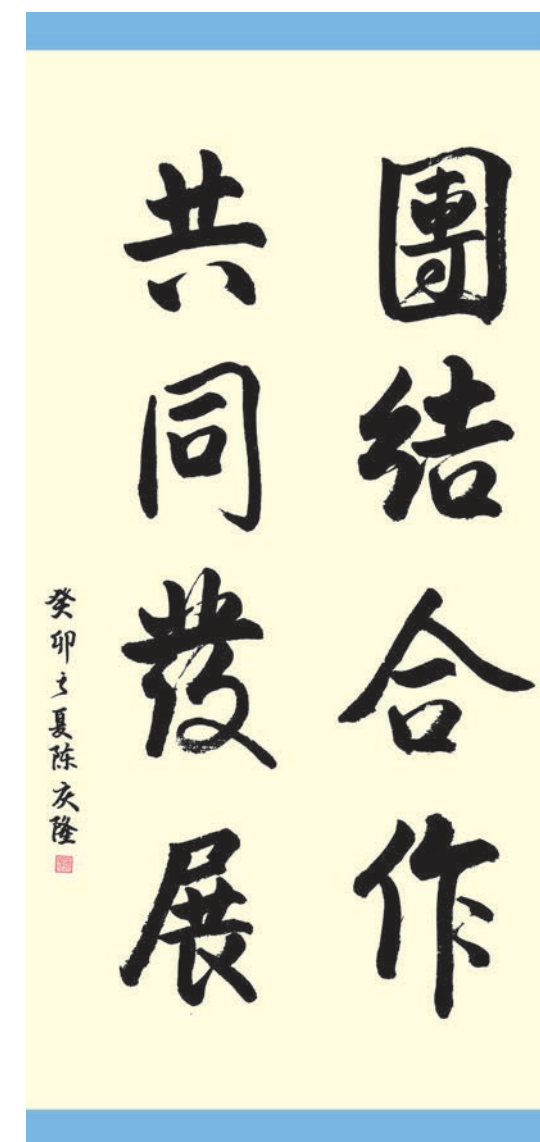 團结合作
共同發展
癸卯之夏陈庆隆